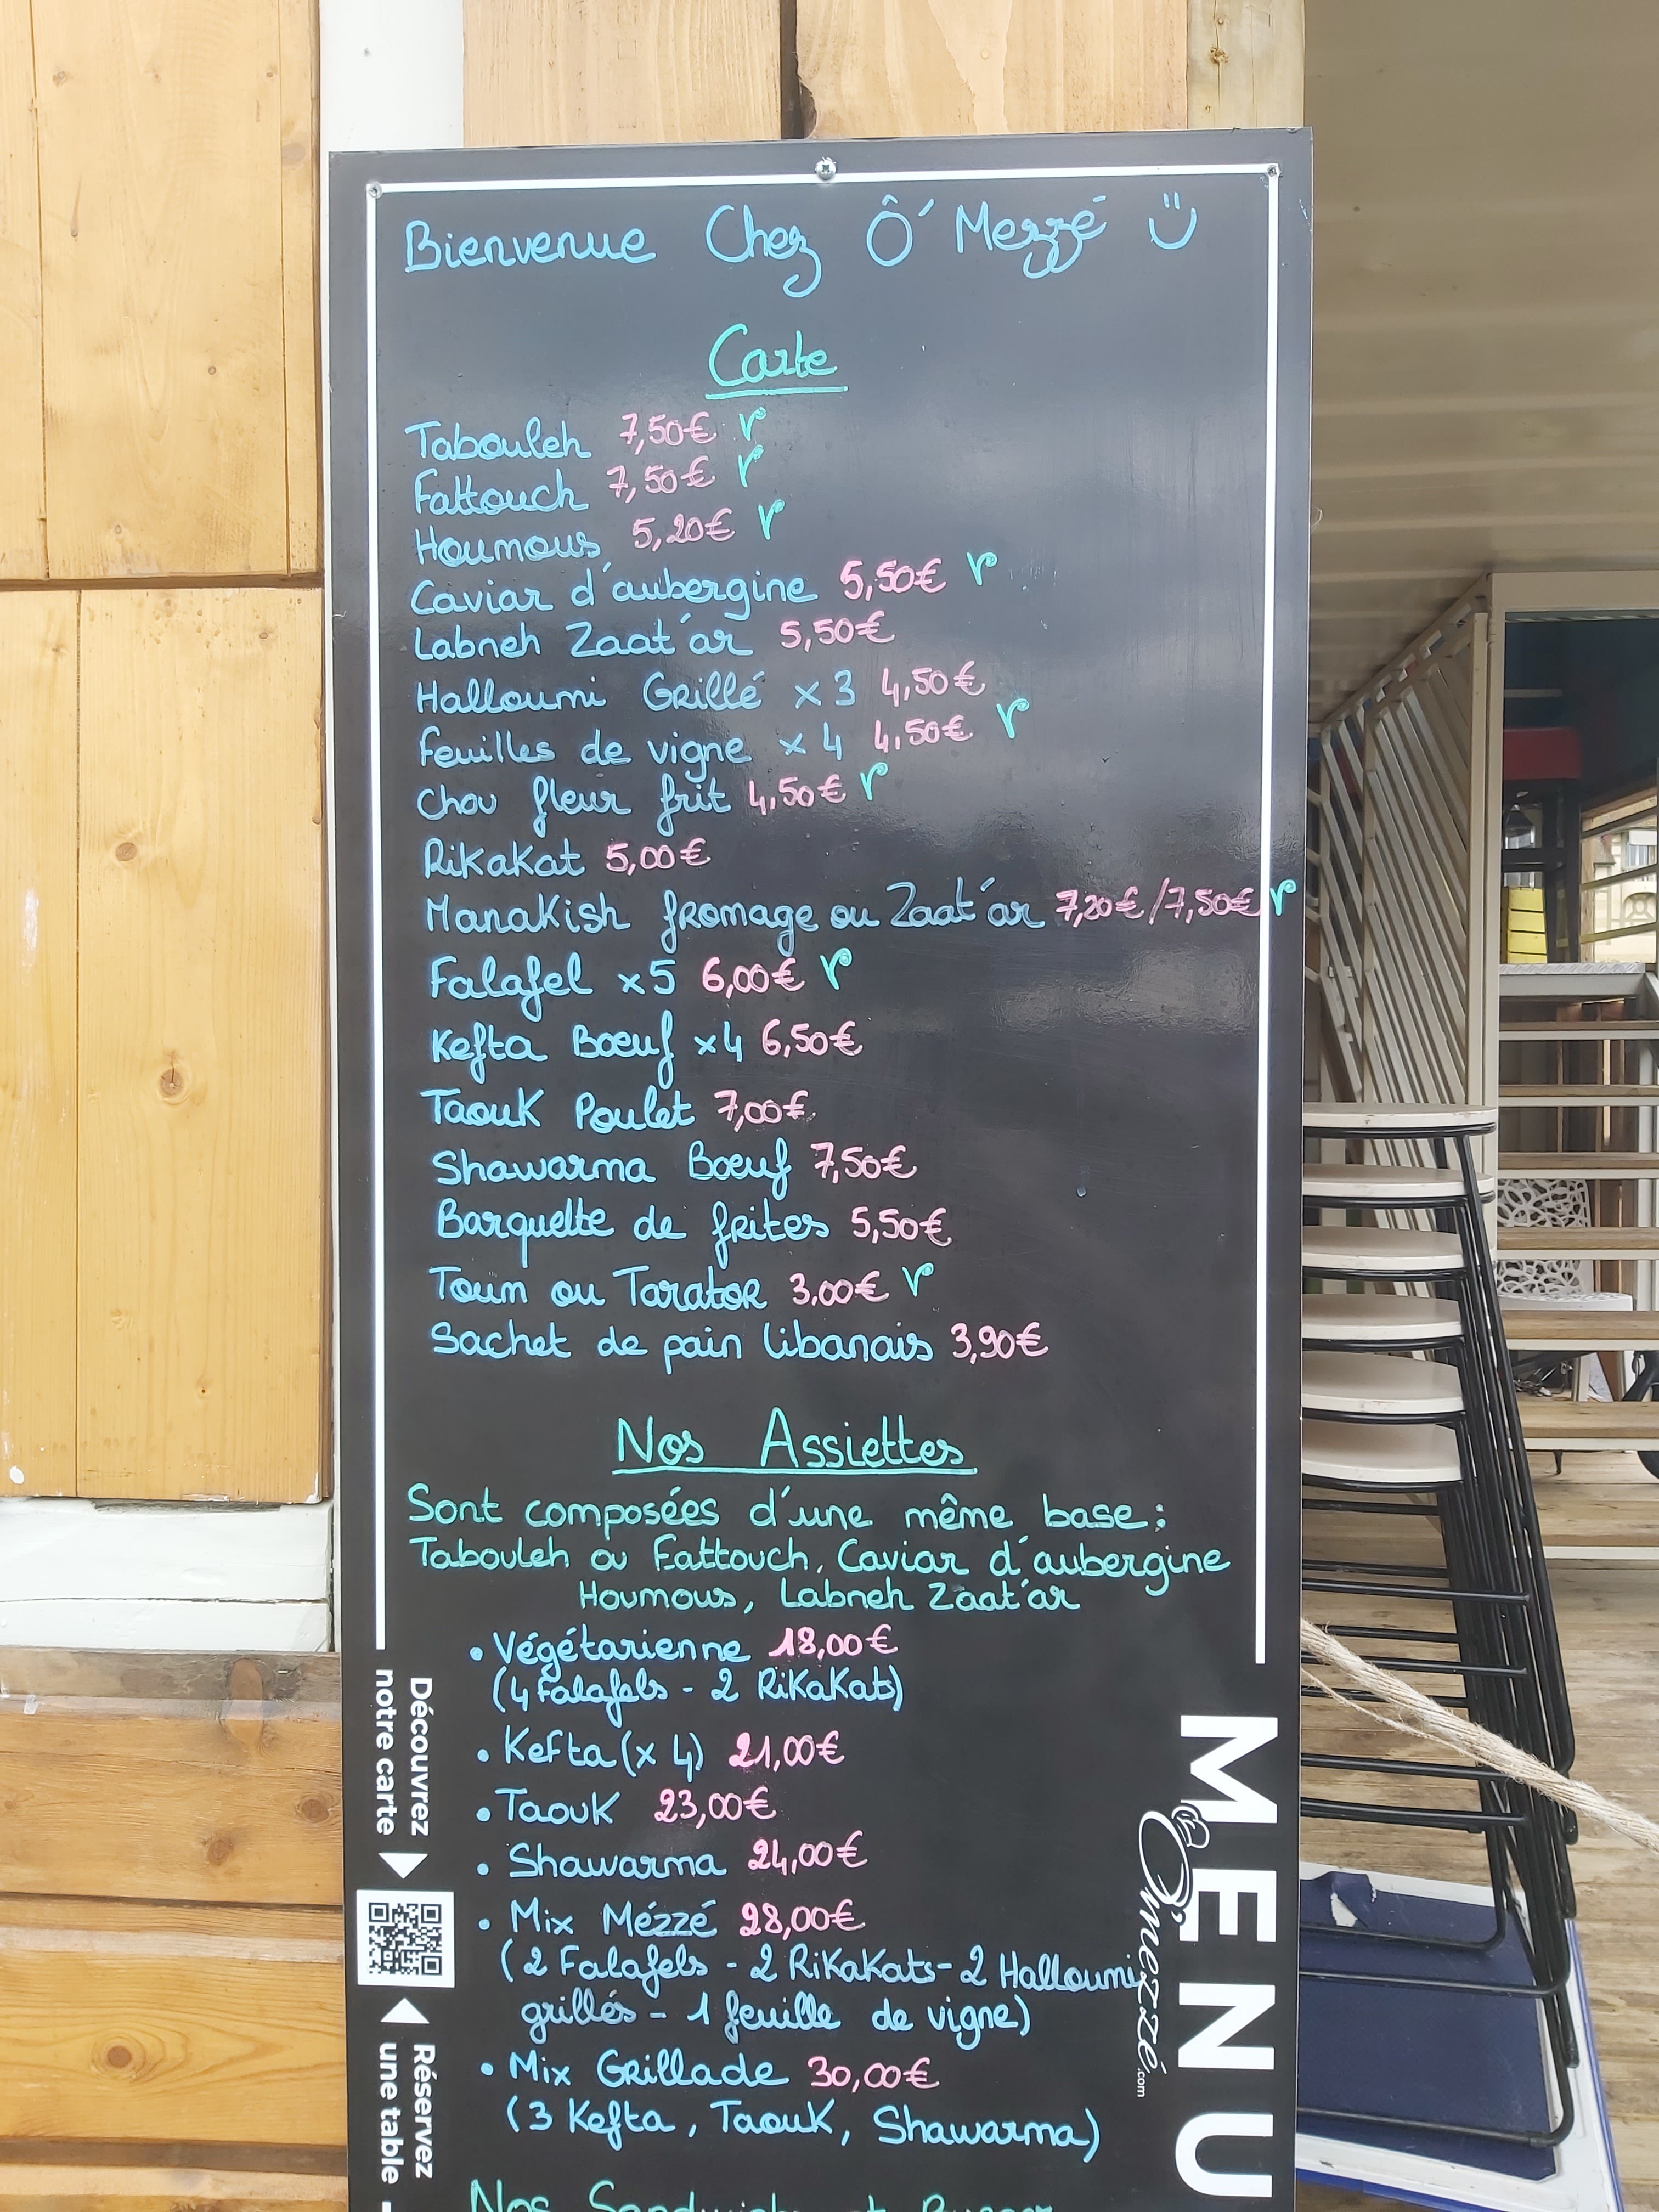 Bienvenue Chez Ô' Mezzé
Carte
Tabouleh 7,50€ V
Fattouch 7,50€ V
Houmous 5,20€ V
Caviar d'aubergine 5,50€ V
Labneh Zaat'ar 5,50€
Halloumi Grillé x 3 4,50€
Feuilles de vigne x 4 4,50€ V
Chou fleur frit 4,50€ V
Rikakat 5,00€
Manakish fromage ou Zaat'ar 7,20€/7,50€ V
Falafel x5 6,00€ V
Kefta Boeuf x4 6,50€
Taouk Poulet 7,00€
Shawarma Boeuf 7,50€
Barquette de frites 5,50€
Toum ou Tarator 3,00€ V
Sachet de pain libanais 3,90€
Nos Assiettes
Sont composées d'une même base :
Tabouleh ou Fattouch, Caviar d'aubergine
Houmous, Labneh Zaat'ar
• Végétarienne 18,00€
(4 Falafels - 2 Rikakats)
• Kefta (x 4) 21,00€
• Taouk 23,00€
• Shawarma 24,00€
• Mix Mézzé 28,00€
(2 Falafels - 2 Rikakats - 2 Halloumi
grillés - 1 feuille de vigne)
• Mix Grillade 30,00€
(3 Kefta, Taouk, Shawarma)
Découvrez
notre carte
Réservez
une table
MENU
Ô'mezzé.com